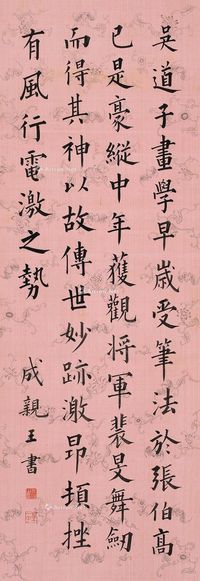 吳道子畫學早歲受筆法於張伯高
已是豪縱中年獲觀將軍裴旻舞劒
而得其神以故傳世妙跡激昂頓挫
有風行電激之勢
成親王書